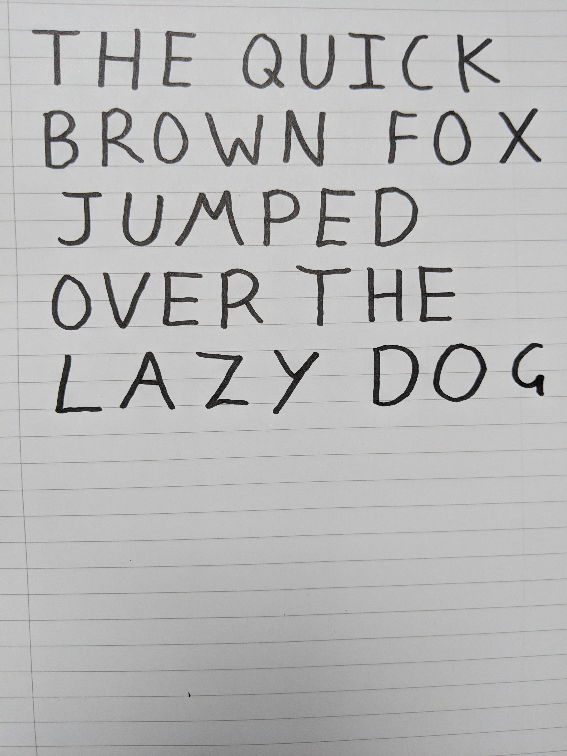 THE QUICK
BROWN FOX
JUMPED
OVER THE
LAZY DOG